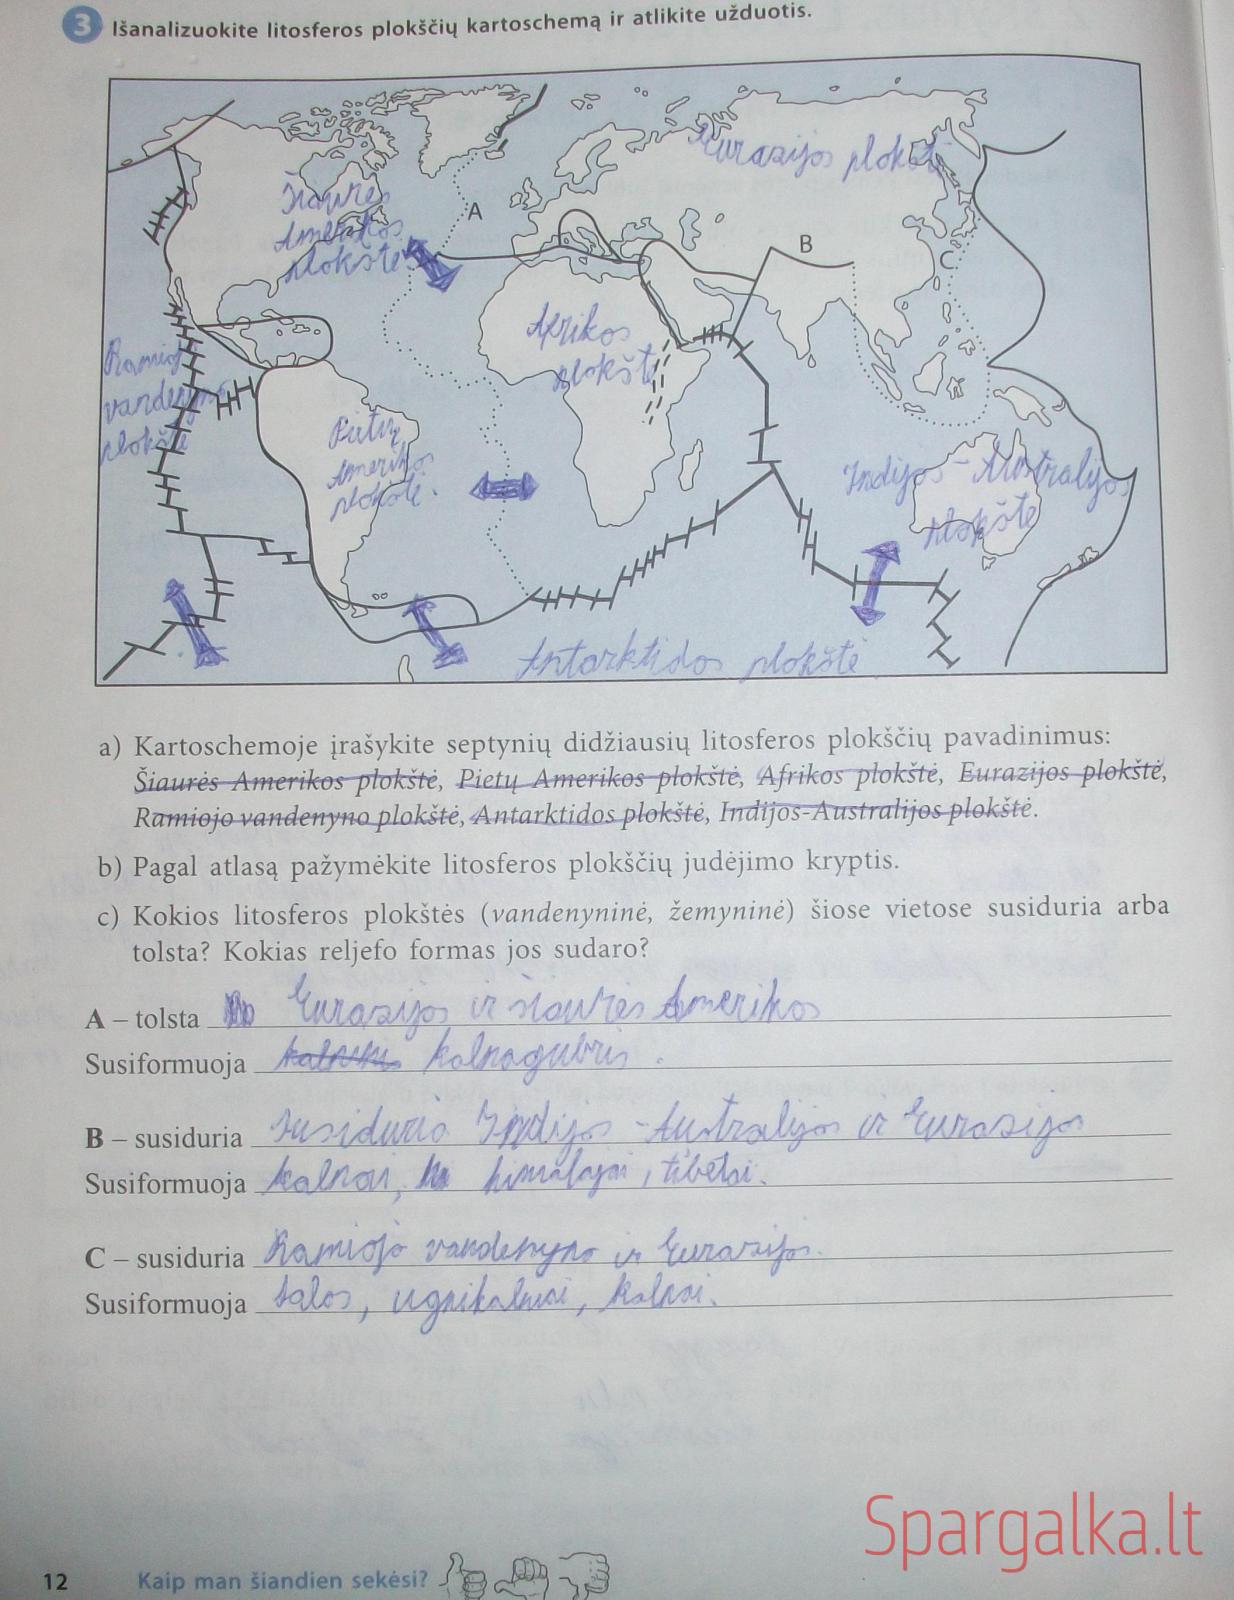 3 Išanalizuokite litosferos plokščių kartoschemą ir atlikite užduotis.
Eurazijos plokštė
A
Šiaurės
Amerikos
plokštė
B
C
Afrikos
plokštė
Ramiojo
vandenyno
plokštė
Pietų
Amerikos
plokštė.
Indijos-Australijos
plokštė
Antarktidos plokštė
a) Kartoschemoje įrašykite septynių didžiausių litosferos plokščių pavadinimus:
Šiaurės Amerikos plokštė, Pietų Amerikos plokštė, Afrikos plokštė, Eurazijos plokštė,
Ramiojo vandenyno plokštė, Antarktidos plokštė, Indijos-Australijos plokštė.
b) Pagal atlasą pažymėkite litosferos plokščių judėjimo kryptis.
c) Kokios litosferos plokštės (vandenyninė, žemyninė) šiose vietose susiduria arba
tolsta? Kokias reljefo formas jos sudaro?
A – tolsta Eurazijos ir šiaurės Amerikos
Susiformuoja kalnagubris.
B – susiduria susiduria Indijos-Australijos ir Eurazijos
Susiformuoja kalnai, himalajai, tibetai.
C – susiduria Ramiojo vandenyno ir Eurazijos.
Susiformuoja salos, ugnikalniai, kalnai.
Spargalka.lt
12 Kaip man šiandien sekėsi?